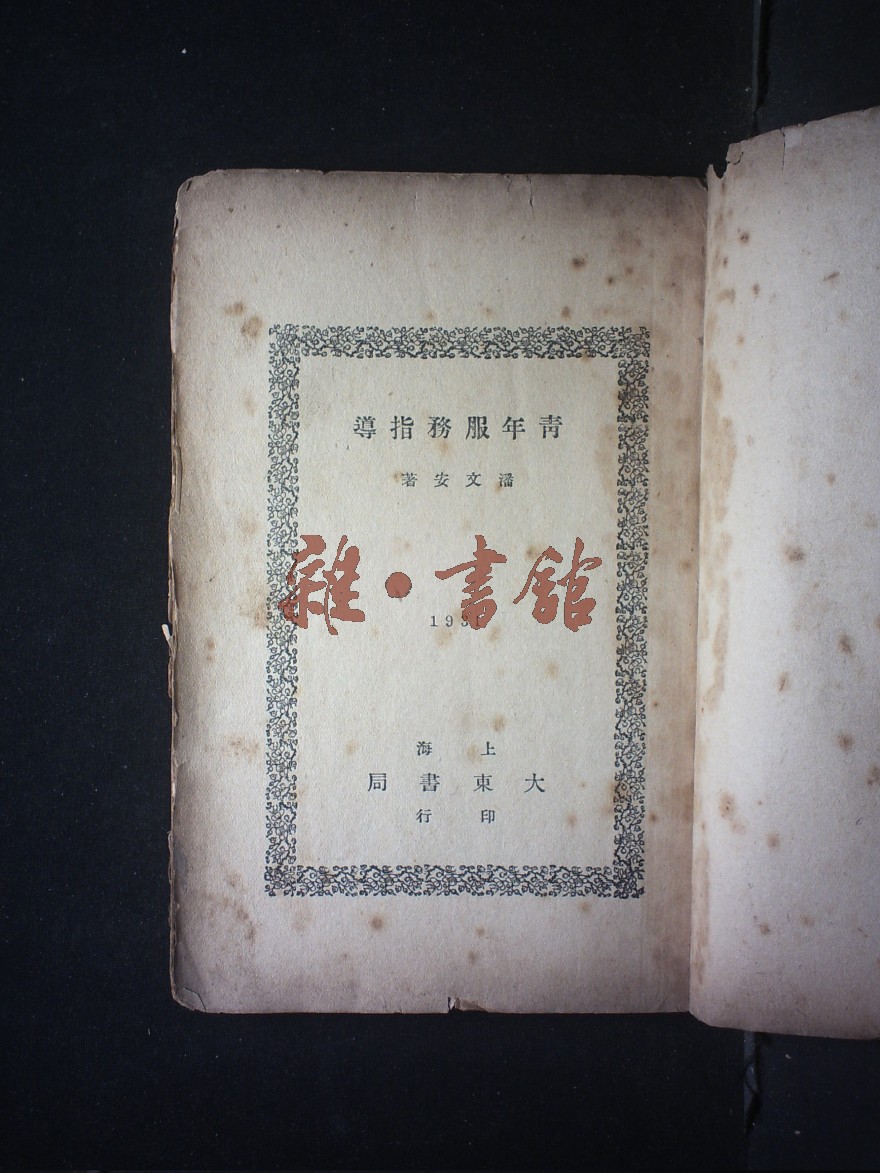 青年服務指導
潘文安著
雜·書館
上海
大東書局
印行